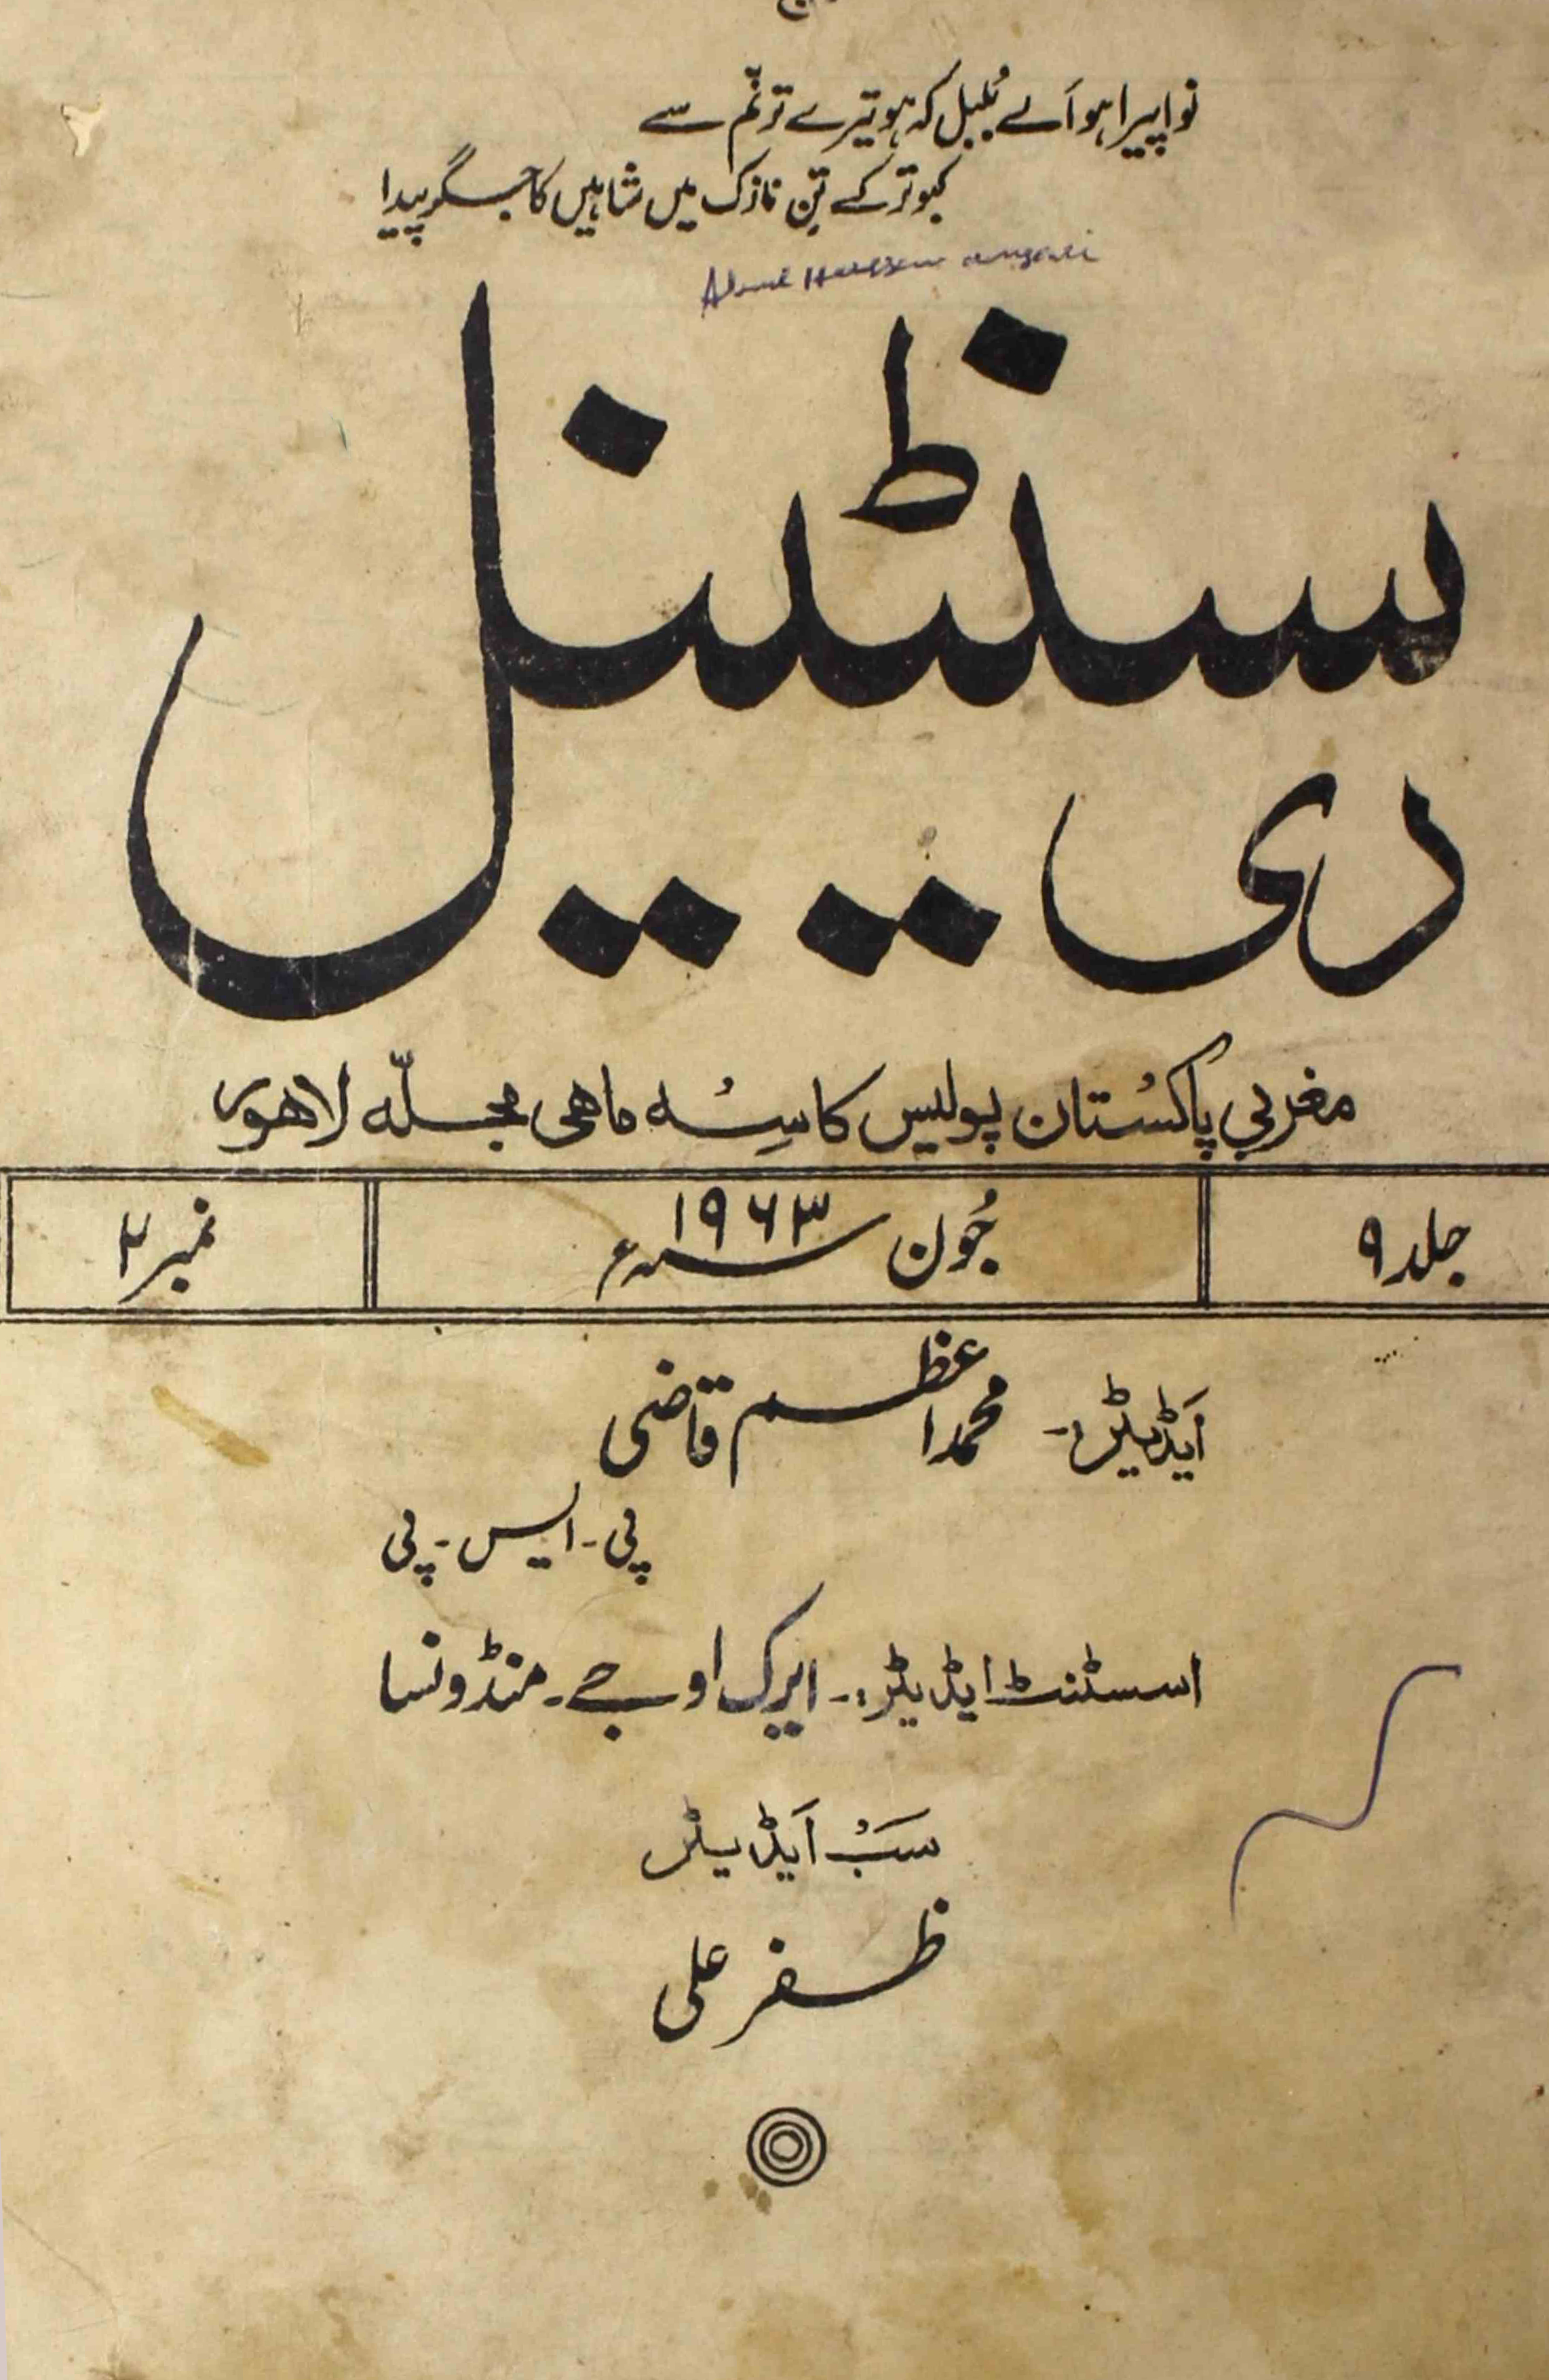 نوا پیرا ہو اَے بُلبل کہ ہو تیرے ترنّم سے
کبوتر کے تنِ نازک میں شاہیں کا جگر پیدا
سنٹینل
دی
مغربی پاکستان پولیس کا سِہ ماہی مجلّہ لاہور
جلد ۹
جُون ۱۹۶۳ء
نمبر ۲
اَیڈیٹر:۔ محمد اعظم قاضی
پی۔ ایس۔ پی
اسسٹنٹ ایڈیٹر:۔ ایرک او جے۔ منڈونسا
سَبْ اَیڈیٹر
ظفر علی